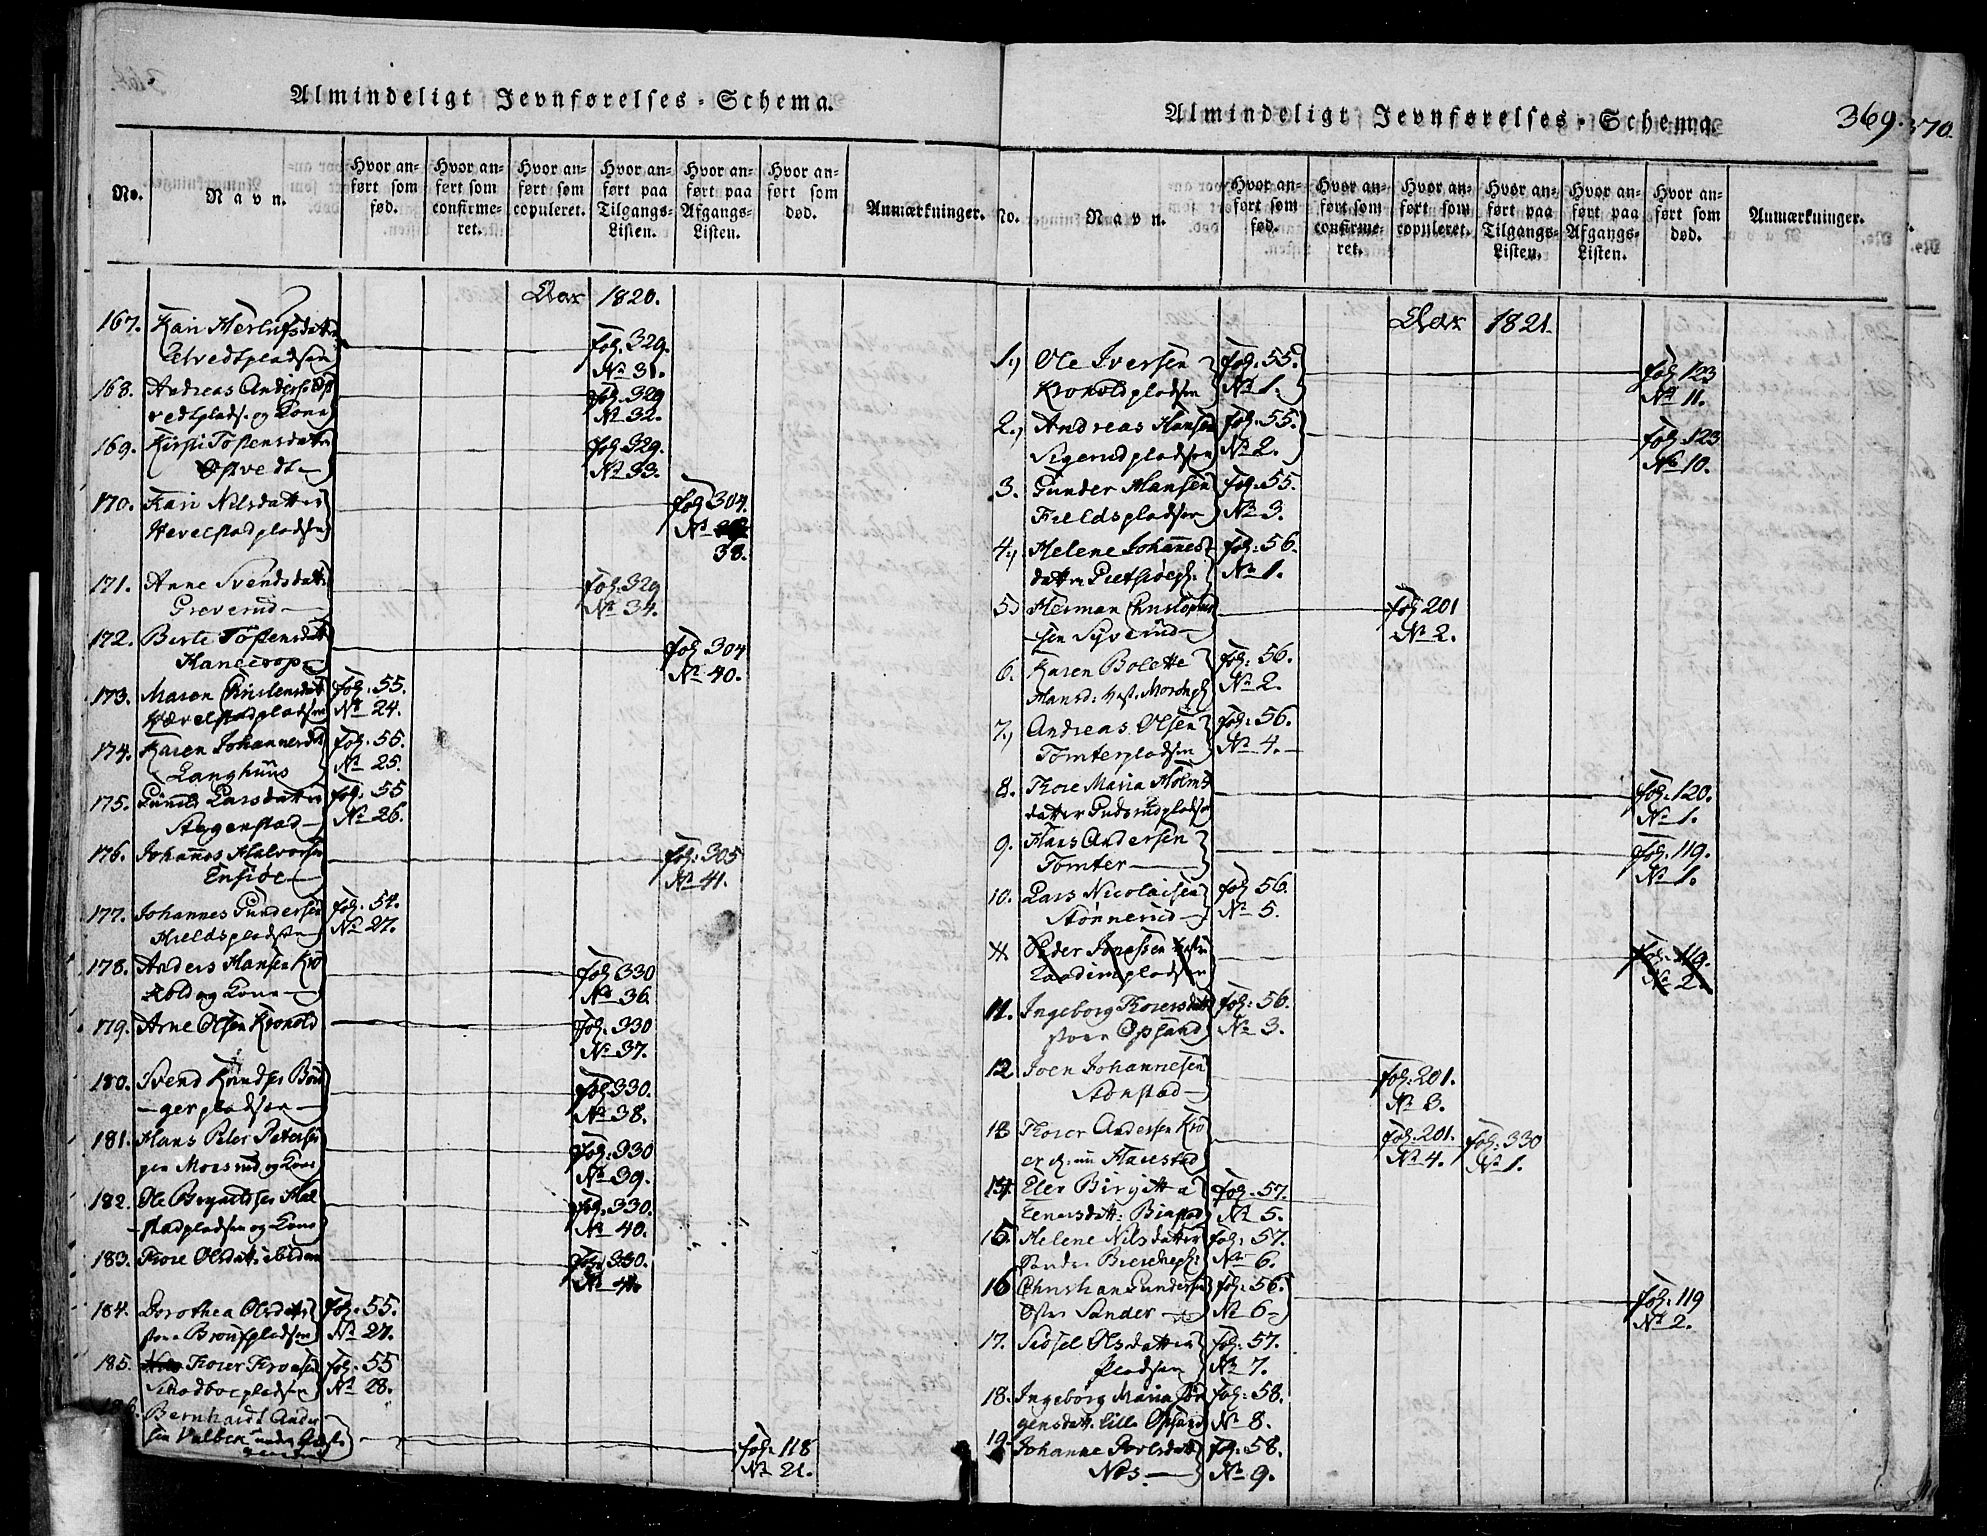 Almindeligt Jevnførelses-Schema.
No.
Navn.
Hvor an-
ført som
fød.
Hvor an-
ført som
confirme-
ret.
Hvor an-
ført som
copuleret.
Hvor an-
ført paa
Tilgangs-
Listen.
Hvor an-
ført paa
Afgangs-
Listen.
Hvor an-
ført som
død.
Anmærkninger.
Aar 1820.
167. Kari Herlufsdatter fol. 329.
No 31.
168. Andreas Anders fol. 329
og Kona No 32.
169. Kirsti Tostensdatter fol. 329.
Østvedt No 33.
170. Kari Nilsdatter fol 304.
Hevelstadpladsen No
38.
171. Anne Svendsdatter fol. 329
Greverud No 34.
172. Berte Tostensdatt fol. 304
No 40.
173. Maren Christensdatt fol. 55.
Hævelstadpladsen No 24.
174. Karen Johannesd fol. 55.
Langhuus No 25.
175. Gunild Larsdatter fol. 55
Stegenstad No 26.
176. Johannes Halvorsen fol. 305
No 41.
177. Johannes Gundersen fol. 54.
Kieldspladsen No 27.
178. Anders Hansen Kro fol 330
kold og Kone No 36.
179. Arne Olsen Kronold fol. 330
No 37.
180. Svend fol. 330.
gerpladsen No 38.
181. Hans Peter Petersen fol. 330
og Kone No 39.
182. Ole fol. 330.
stadpladsen og Kone No 40.
183. Thore Olsdatt ibidem fol. 330.
No 41.
184. Dorothea Olsdatter fol. 55.
No 27.
185. Thorer fol. 55
No 28.
Bernhardt Ander
sen fol. 118
No 21.
Almindeligt Jevnførelses-Schema.
369.
370.
No.
Navn.
Hvor an-
ført som
fød.
Hvor an-
ført som
confirme-
ret.
Hvor an-
ført som
copuleret.
Hvor an-
ført paa
Tilgangs-
Listen.
Hvor an-
ført paa
Afgangs-
Listen.
Hvor an-
ført som
død.
Anmærkninger.
Aar 1821.
1., Ole Iversen fol. 55. fol. 123
Kronoldpladsen No 1. No 11.
2., Andreas Hansen fol. 55. fol. 123
Sigerudpladsen No 2. No 10.
3. Gunder Hansen fol. 55.
Fieldspladsen No 3.
4., Helene Johannes fol. 56.
datter No 1.
5., Herman Christopher fol 201
sen Syverud No 2.
6. Karen Bolette fol. 56.
Hansd. No 2.
7., Andreas Olsen fol. 56.
Tomterpladsen No 4.
8. Thore Maria Holms fol. 120.
datter No 1.
9. Hans Andersen fol. 119.
Tomter No 1.
10. Lars Nicolaisen fol 56.
Stønnerud No 5.
Peder fol. 119.
No 2.
11. Ingeborg Thorersdatt fol. 56.
store Opsand No 3.
12 Joen Johannesen fol. 201.
Stonstad No 3.
13 Thorer Andersen Kro fol. 201. fol. 330
No 4. No 1.
14. Elen Birgitta fol. 57.
No 5.
15. Helene Nilsdatter fol. 57.
No 6.
16 Christian Gundersen fol. 56. fol. 119
Øster Sander No 6 No 2.
17. Sidsel Olsdatter fol. 57.
Pladsen No 7.
18. Ingeborg Maria Jør fol. 58.
gensdatt. lille Opsand No 8.
19. Johanne fol. 58.
Næs No 9.